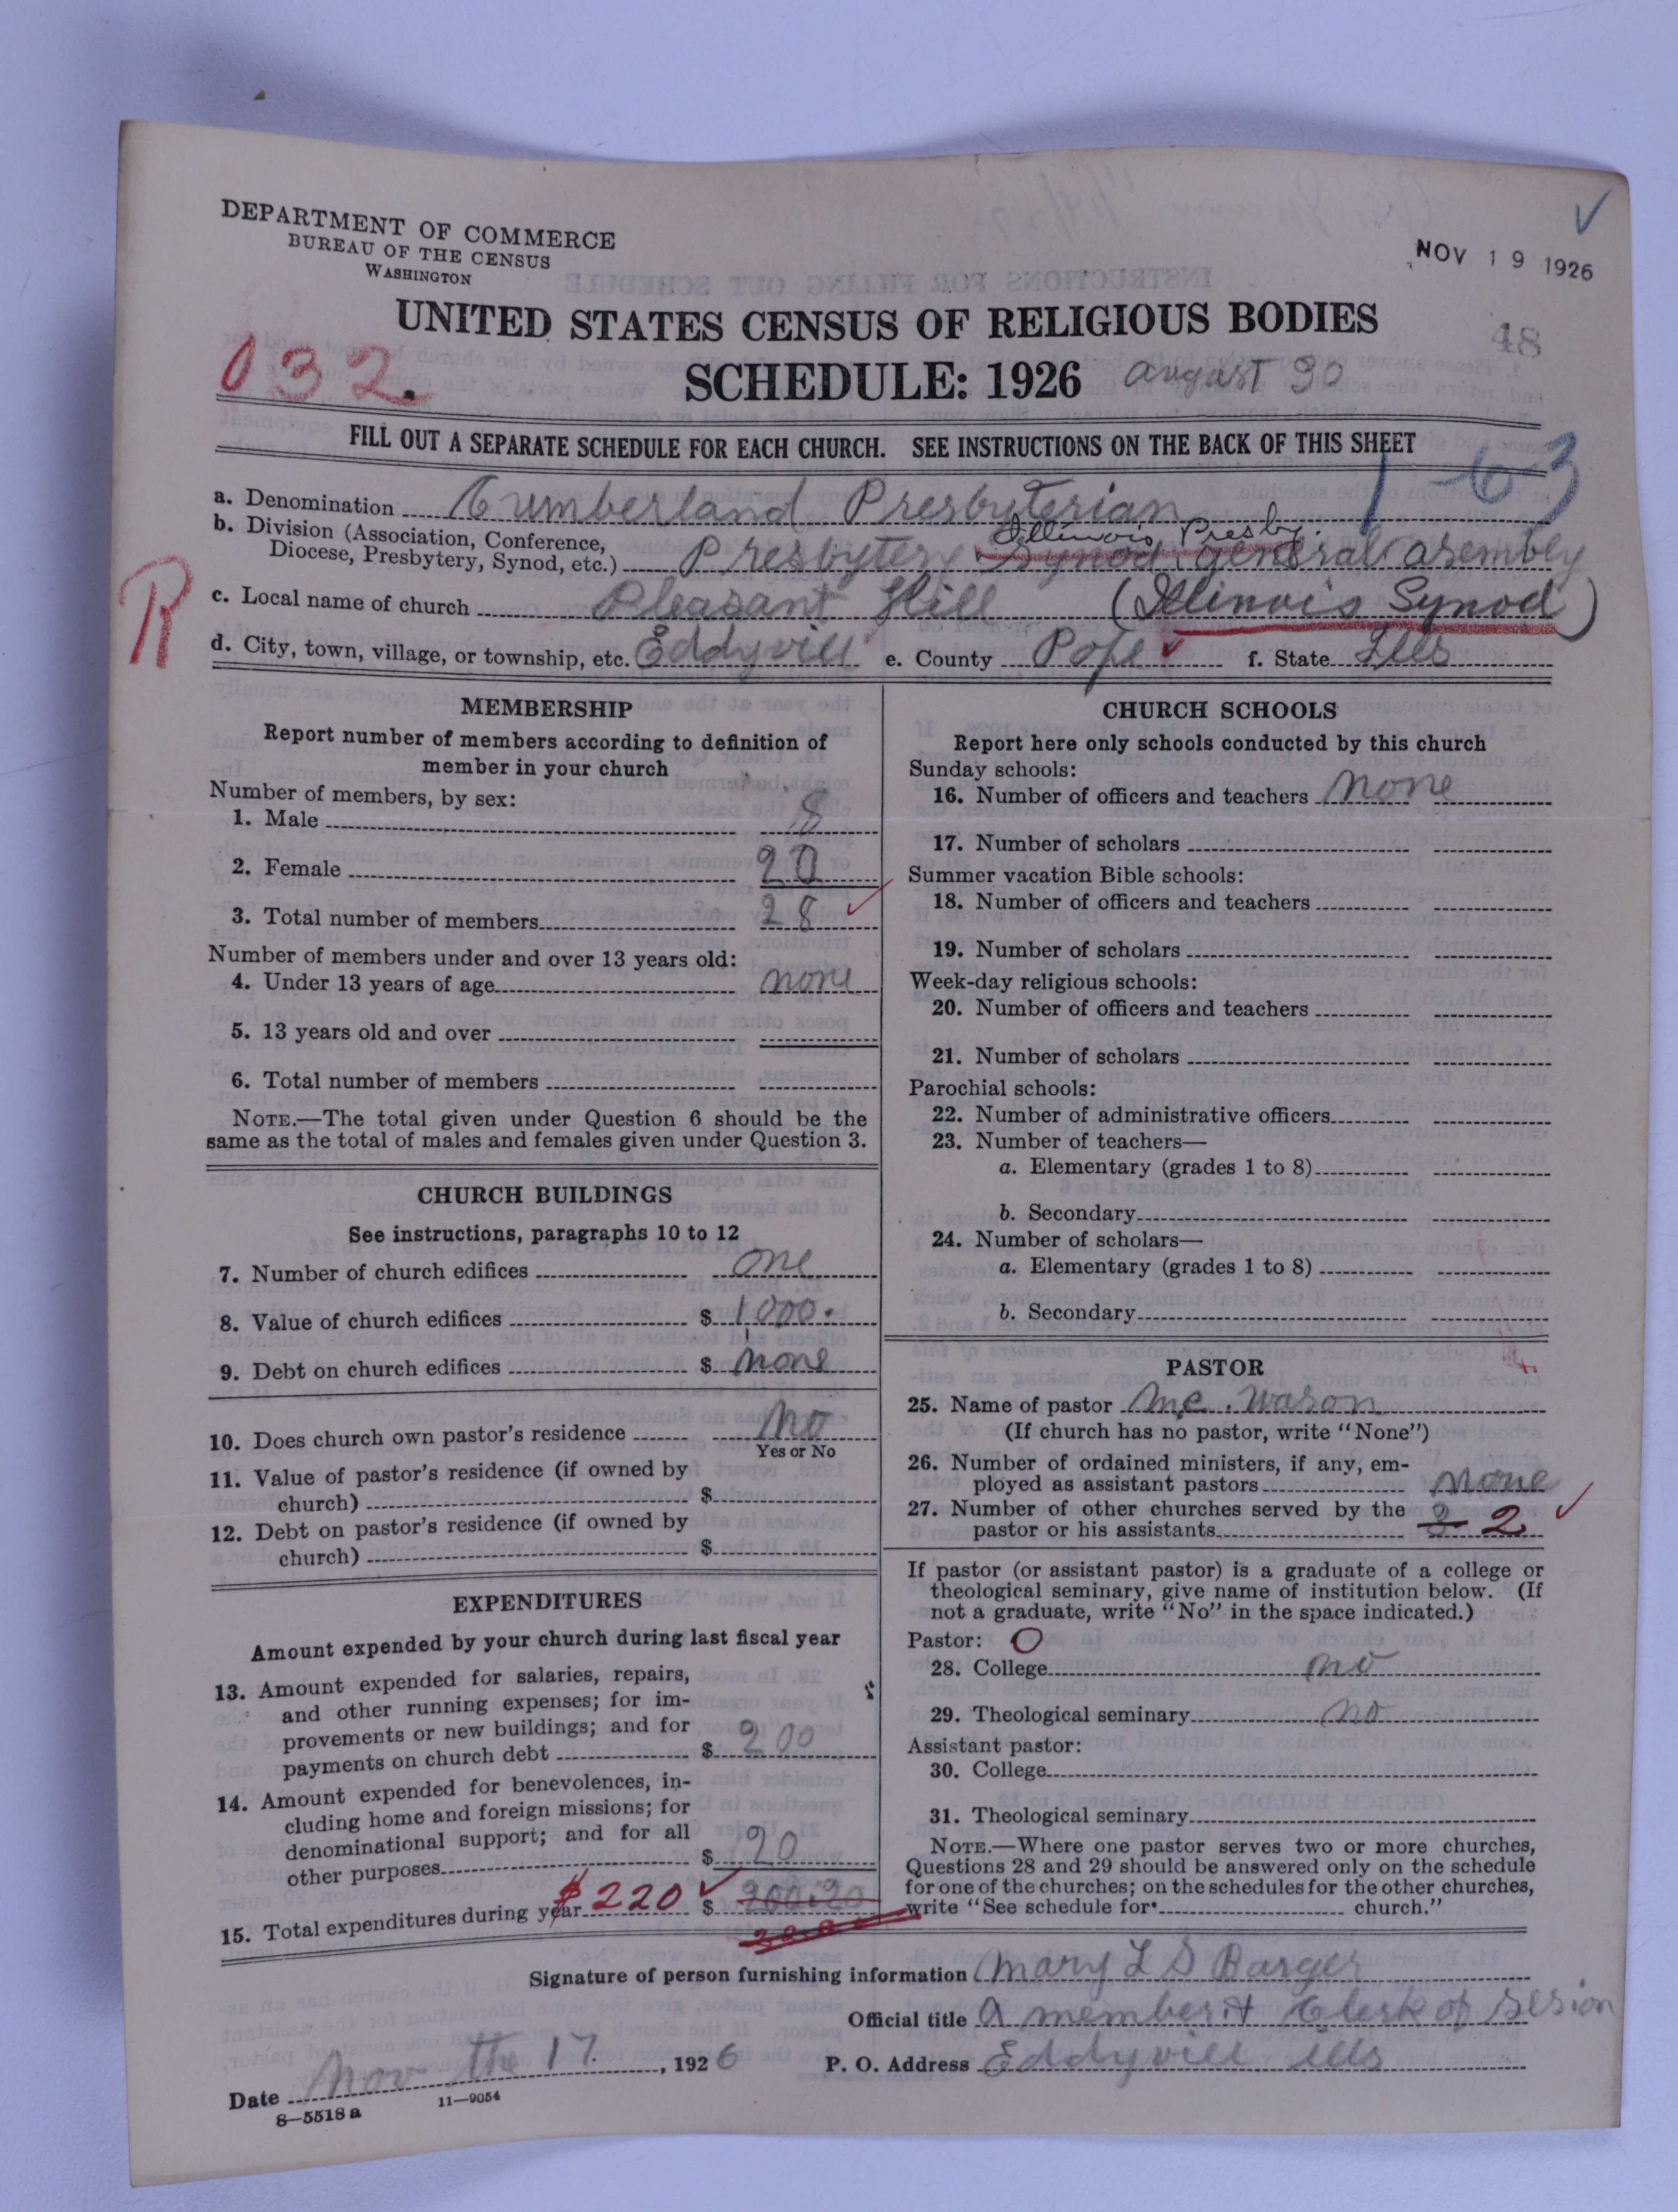 DEPARTMENT OF COMMERCE
BUREAU OF THE CENSUS
WASHINGTON
NOV 19 1926
UNITED STATES CENSUS OF RELIGIOUS BODIES
48
032.
SCHEDULE: 1926 august 30
FILL OUT A SEPARATE SCHEDULE FOR EACH CHURCH. SEE INSTRUCTIONS ON THE BACK OF THIS SHEET
1-63
a. Denomination Cumberland Presbyterian
Illinois Presby.
b. Division (Association, Conference, Diocese, Presbytery, Synod, etc.) Presbytery Synod general asembly
R
c. Local name of church Pleasant Hill (Illinois Synod)
d. City, town, village, or township, etc. Eddyvill e. County Pope f. State Ills
MEMBERSHIP
Report number of members according to definition of
member in your church
Number of members, by sex:
1. Male 8
2. Female 20
3. Total number of members 28
Number of members under and over 13 years old:
4. Under 13 years of age none
5. 13 years old and over
6. Total number of members
NOTE.—The total given under Question 6 should be the
same as the total of males and females given under Question 3.
CHURCH BUILDINGS
See instructions, paragraphs 10 to 12
7. Number of church edifices one
8. Value of church edifices $ 1000.
9. Debt on church edifices $ none
10. Does church own pastor's residence no
Yes or No
11. Value of pastor's residence (if owned by
church) $
12. Debt on pastor's residence (if owned by
church) $
EXPENDITURES
Amount expended by your church during last fiscal year
13. Amount expended for salaries, repairs,
and other running expenses; for im-
provements or new buildings; and for
payments on church debt $ 200
14. Amount expended for benevolences, in-
cluding home and foreign missions; for
denominational support; and for all
other purposes $ 20
15. Total expenditures during year $220 $ 200.20
CHURCH SCHOOLS
Report here only schools conducted by this church
Sunday schools:
16. Number of officers and teachers none
17. Number of scholars
Summer vacation Bible schools:
18. Number of officers and teachers
19. Number of scholars
Week-day religious schools:
20. Number of officers and teachers
21. Number of scholars
Parochial schools:
22. Number of administrative officers
23. Number of teachers—
a. Elementary (grades 1 to 8)
b. Secondary
24. Number of scholars—
a. Elementary (grades 1 to 8)
b. Secondary
PASTOR
25. Name of pastor M.C. Wason
(If church has no pastor, write "None")
26. Number of ordained ministers, if any, em-
ployed as assistant pastors none
27. Number of other churches served by the
pastor or his assistants 3 2
If pastor (or assistant pastor) is a graduate of a college or
theological seminary, give name of institution below. (If
not a graduate, write "No" in the space indicated.)
Pastor: O
28. College no
29. Theological seminary no
Assistant pastor:
30. College
31. Theological seminary
NOTE.—Where one pastor serves two or more churches,
Questions 28 and 29 should be answered only on the schedule
for one of the churches; on the schedules for the other churches,
write "See schedule for church."
Signature of person furnishing information Mary L S Barger
Official title A member & Clerk of Sesion
Date Nov the 17, 1926 P. O. Address Eddyvill Ills
8—5518 a 11—9054